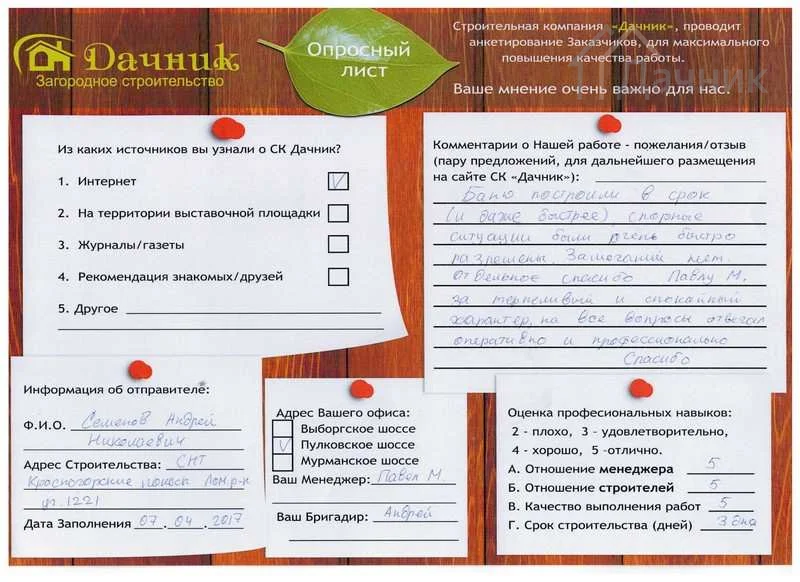 Дачник
Загородное строительство
Опросный
лист
Строительная компания «Дачник», проводит
анкетирование Заказчиков, для максимального
повышения качества работы.
Дачник
Ваше мнение очень важно для нас.
Из каких источников вы узнали о СК Дачник?
1. Интернет
2. На территории выставочной площадки
3. Журналы/газеты
4. Рекомендация знакомых/друзей
5. Другое
Комментарии о Нашей работе - пожелания/отзыв
(пару предложений, для дальнейшего размещения
на сайте СК «Дачник»):
Баню построили в срок
(и даже быстрее) спорные
ситуации были очень быстро
разрешены. Замечаний нет.
Отдельное спасибо Павлу М.
за терпеливый и спокойный
характер, на все вопросы отвечал
оперативно и профессионально
Спасибо
Информация об отправителе:
Ф.И.О. Семенов Андрей
Николаевич
Адрес Строительства: СНТ
Красногорские Лом р-н
уч. 1221
Дата Заполнения 07.04.2017
Адрес Вашего офиса:
Выборгское шоссе
Пулковское шоссе
Мурманское шоссе
Ваш Менеджер: Павел М.
Ваш Бригадир: Андрей
Оценка професиональных навыков:
2 - плохо, 3 - удовлетворительно,
4 - хорошо, 5 -отлично.
А. Отношение менеджера 5
Б. Отношение строителей 5
В. Качество выполнения работ 5
Г. Срок строительства (дней) 3 дня